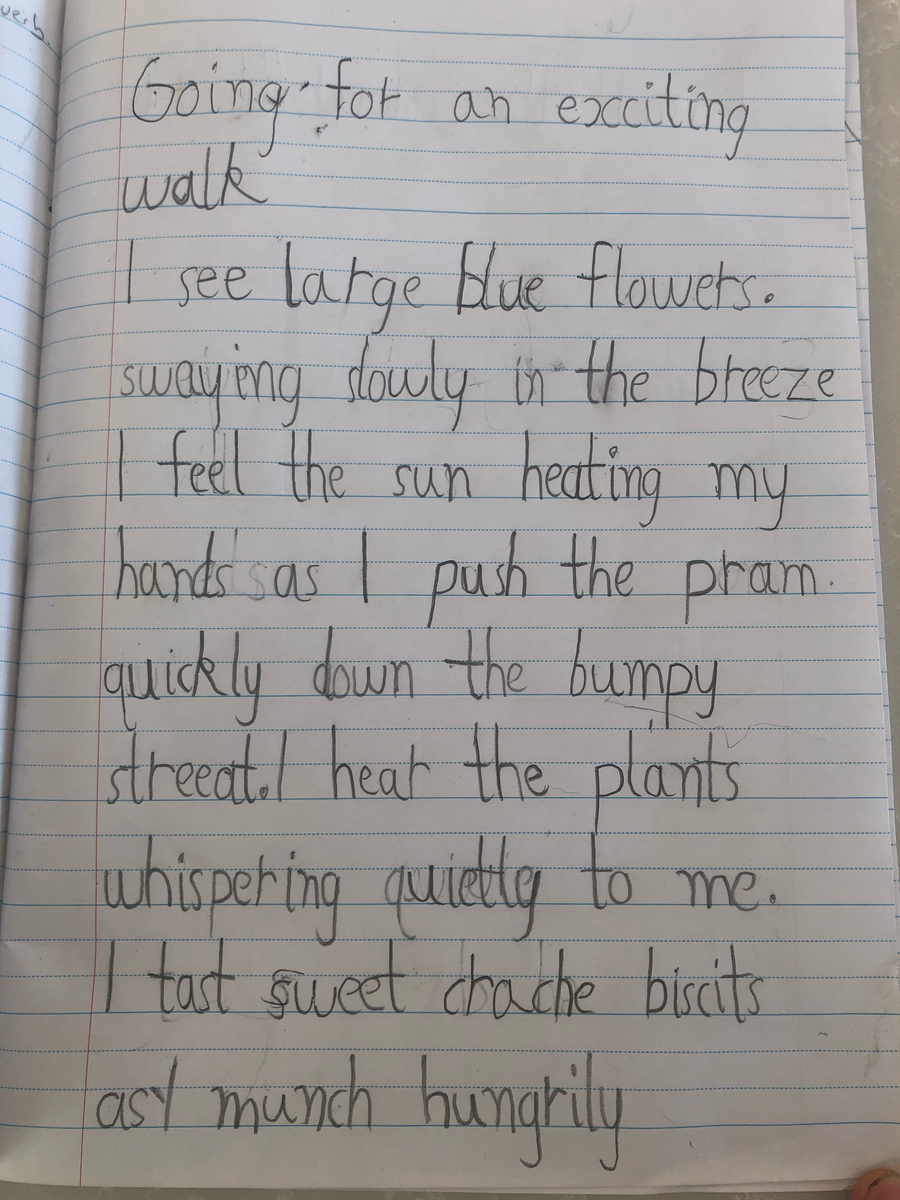 verb.
Going for an excciting
walk
I see large blue flowers.
swaying slowly in the breeze
I feel the sun heating my
hands as I push the pram.
quickly down the bumpy
streeat.I hear the plants
whispering quietly to me.
I tast sweet
biscits
as I munch hungrily